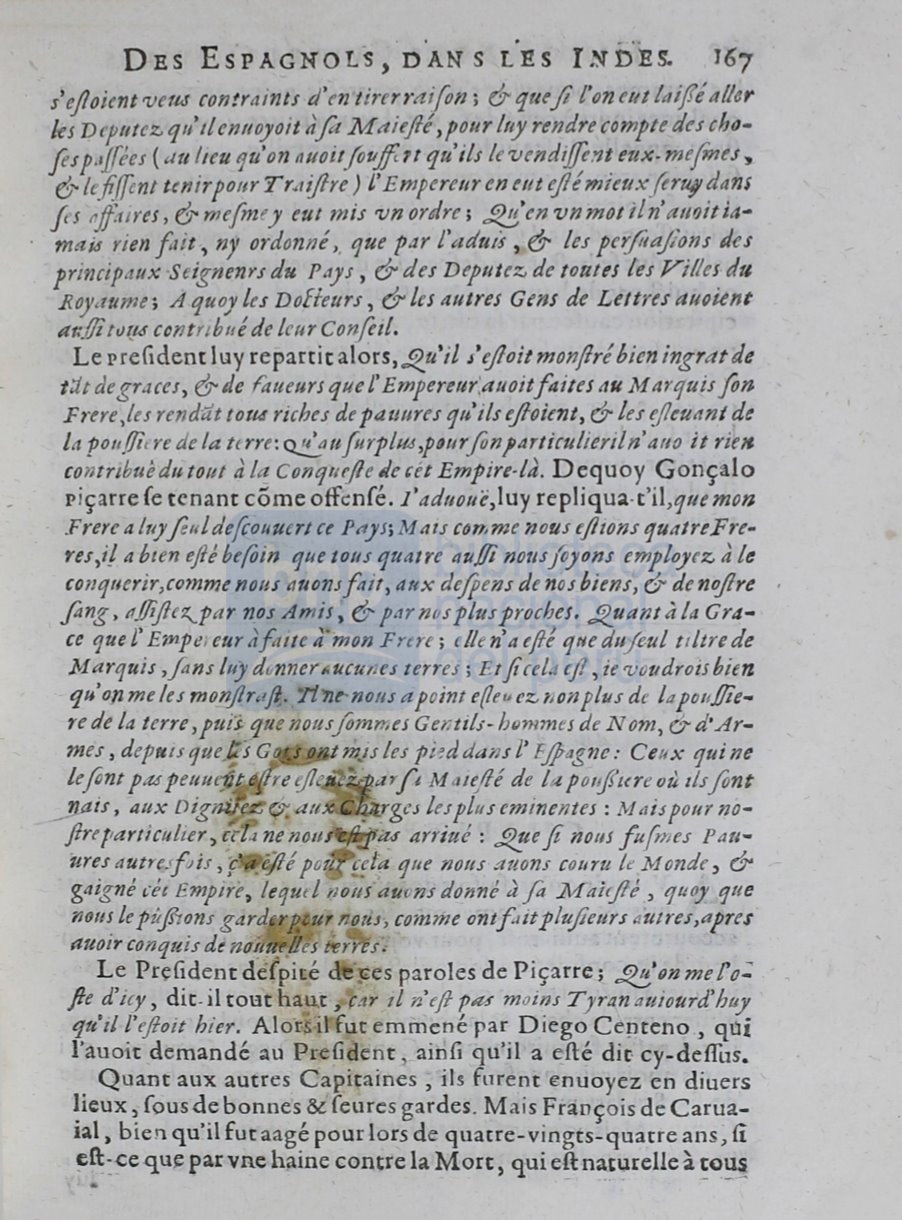 DES ESPAGNOLS, DANS LES INDES. 167
s'eſtoient veus contraints d'en tirer raiſon ; & que ſi l'on eut laißé aller
les Deputez qu'il enuoyoit à ſa Maieſté, pour luy rendre compte des cho-
ſes paſſées ( au lieu qu'on auoit ſouffert qu'ils le vendiſſent eux-meſmes,
& le fiſſent tenir pour Traiſtre ) l'Empereur en eut eſté mieux ſeruy dans
ſes affaires, & meſme y eut mis vn ordre ; Qu'en vn mot il n'auoit ia-
mais rien fait, ny ordonné, que par l'aduis, & les perſuaſions des
principaux Seignenrs du Pays, & des Deputez de toutes les Villes du
Royaume; A quoy les Docteurs, & les autres Gens de Lettres auoient
auſſi tous contribué de leur Conſeil.
Le Preſident luy repartit alors, Qu'il s'eſtoit monſtré bien ingrat de
tãt de graces, & de faueurs que l'Empereur auoit faites au Marquis ſon
Frere, les rendãt tous riches de pauures qu'ils eſtoient, & les eſleuant de
la pouſſiere de la terre: Qu'au ſurplus, pour ſon particulier il n'auo it rien
contribuè du tout à la Conqueſte de cét Empire-là. Dequoy Gonçalo
Piçarre ſe tenant cõme offenſé. I'aduouë, luy repliqua-t'il, que mon
Frere a luy ſeul deſcouuert ce Pays; Mais comme nous eſtions quatre Fre-
res, il a bien eſté beſoin que tous quatre auſſi nous ſoyons employez à le
conquerir, comme nous auons fait, aux deſpens de nos biens, & de noſtre
ſang, aſſiſtez par nos Amis, & par nos plus proches. Quant à la Gra-
ce que l'Empereur à faite à mon Frere ; elle n'a eſté que du ſeul tiltre de
Marquis, ſans luy donner aucunes terres ; Et ſi cela eſt, ie voudrois bien
qu'on me les monſtraſt. Il ne nous a point eſleuez non plus de la pouſſie-
re de la terre, puis que nous ſommes Gentils-hommes de Nom, & d'Ar-
mes, depuis que les Gots ont mis les pied dans l'Eſpagne : Ceux qui ne
le ſont pas peuuent eſtre eſleuez par ſa Maieſté de la poußiere où ils ſont
nais, aux Dignitez & aux Charges les plus eminentes : Mais pour no-
ſtre particulier, cela ne nous eſt pas arriué : Que ſi nous fuſmes Pau-
ures autresfois, ç'a eſté pour cela que nous auons couru le Monde, &
gaigné cét Empire, lequel nous auons donné à ſa Maieſté, quoy que
nous le pûßions garder pour nous, comme ont fait pluſieurs autres, apres
auoir conquis de nouuelles terres.
Le Preſident deſpité de ces paroles de Piçarre ; Qu'on me l'o-
ſte d'icy, dit-il tout haut, car il n'eſt pas moins Tyran auiourd'huy
qu'il l'eſtoit hier. Alors il fut emmené par Diego Centeno, qui
l'auoit demandé au Preſident, ainſi qu'il a eſté dit cy-deſſus.
Quant aux autres Capitaines, ils furent enuoyez en diuers
lieux, ſous de bonnes & ſeures gardes. Mais François de Carua-
ial, bien qu'il fut aagé pour lors de quatre-vingts-quatre ans, ſi
eſt-ce que par vne haine contre la Mort, qui eſt naturelle à tous